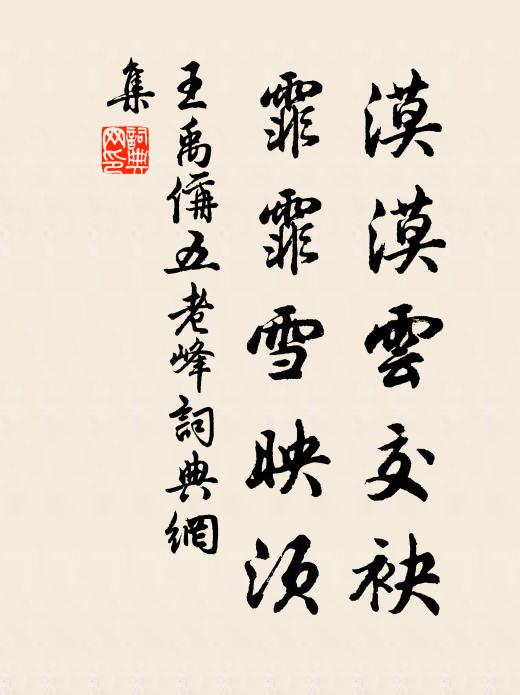 漠漠雲交袂
霏霏雪映須
王禹偁五老峰詞典網
集
詞典網印